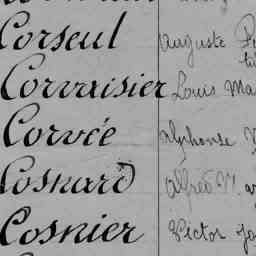 Corseul Auguste
Corvaisier Louis
Corvée alphonse
Cosnard alfred
Cosnier Victor